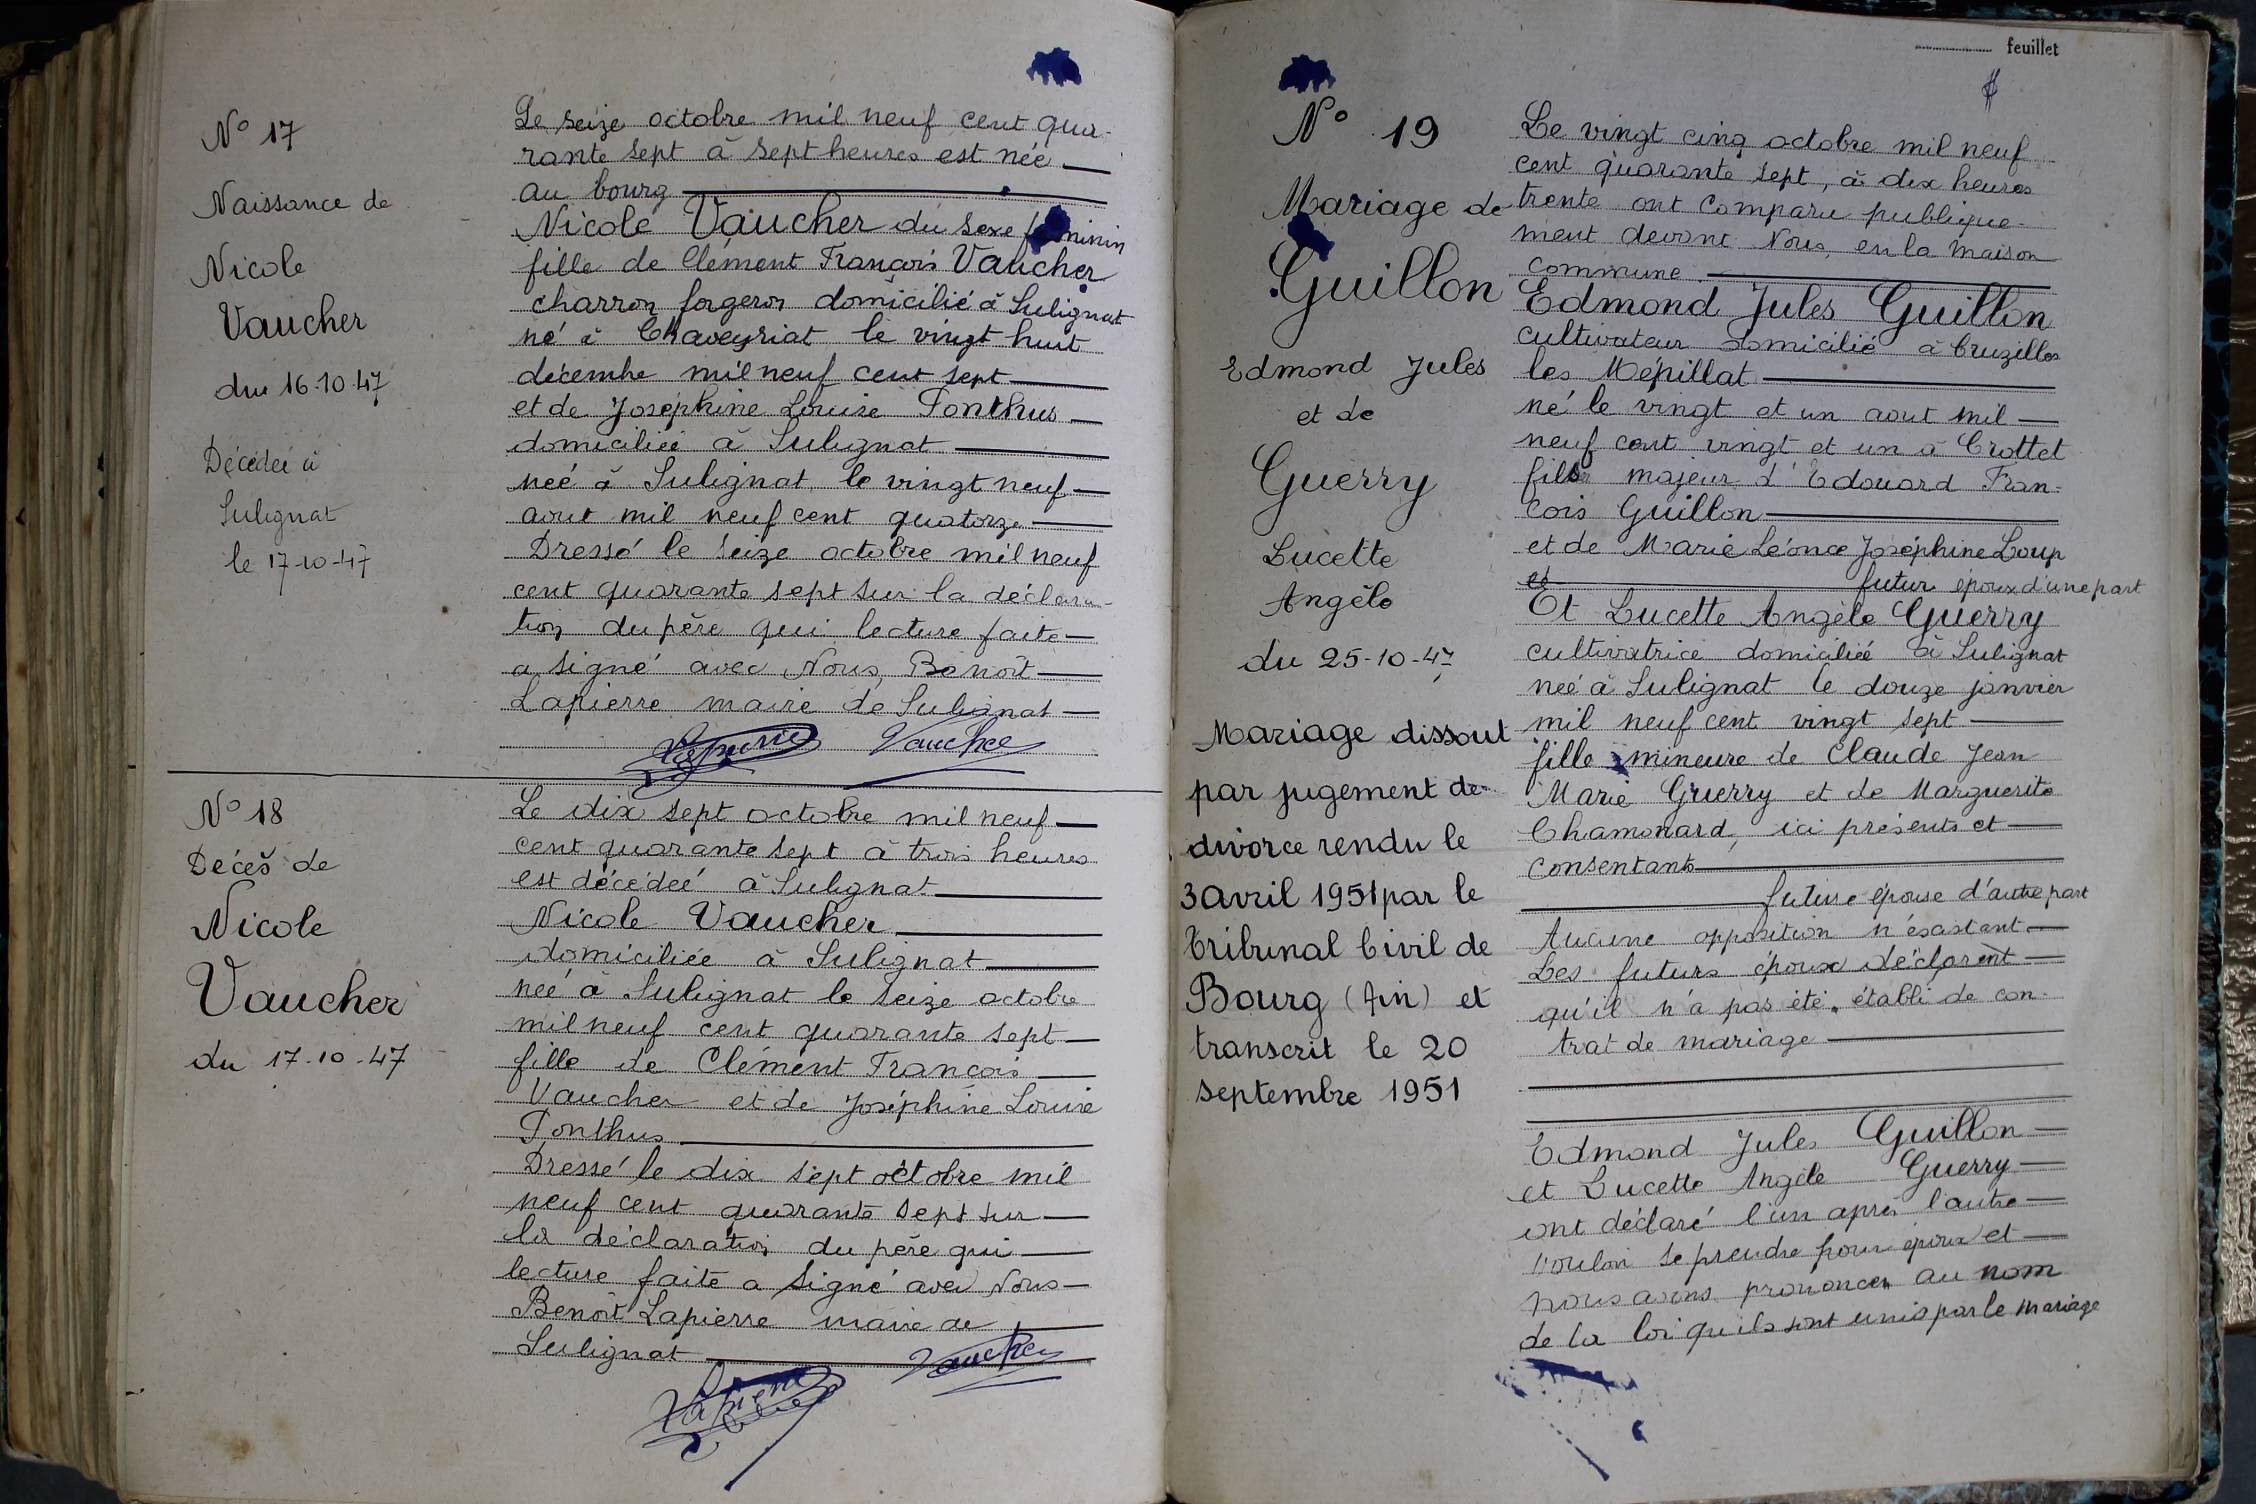 N° 17
Naissance de
Nicole
Vaucher
du 16-10-47
Décédeé à
Sulignat
le 17-10-47
Le seize octobre mil neuf cent qua-
rante sept à sept heures est née
au bourg
Nicole Vaucher du sexe féminin
fille de Clément François Vaucher
charron forgeron domicilié à Sulignat
né à Chaveyriat le vingt huit
décembre mil neuf cent sept
et de Joséphine Louise Ponthus
domiciliée à Sulignat
née à Sulignat le vingt neuf
aout mil neuf cent quatorze
Dressé le seize octobre mil neuf
cent quarante sept sur la déclara-
tion du père qui lecture faite
a signé avec Nous, Benoît
Lapierre maire de Sulignat
Lapierre Vaucher
N° 18
Décès de
Nicole
Vaucher
du 17-10-47
Le dix sept octobre mil neuf
cent quarante sept à trois heures
est décédeé à Sulignat
Nicole Vaucher
domiciliée à Sulignat
née à Sulignat le seize octobre
mil neuf cent quarante sept
fille de Clément François
Vaucher et de Joséphine Louise
Ponthus
Dressé le dix sept octobre mil
neuf cent quarante sept sur
la déclaration du père qui
lecture faite a signé avec Nous
Benoît Lapierre maire de
Sulignat
Vaucher
Lapierre
feuillet
N° 19
Mariage de
Guillon
Edmond Jules
et de
Guerry
Lucette
Angèle
du 25-10-47
Mariage dissout
par jugement de
divorce rendu le
3 avril 1951 par le
Tribunal Civil de
Bourg (Ain) et
transcrit le 20
septembre 1951
Le vingt cinq octobre mil neuf
cent quarante sept, à dix heures
trente ont comparu publique-
ment devant Nous, en la maison
commune
Edmond Jules Guillon
cultivateur domicilié à Cruzilles
les Mépillat
né le vingt et un aout mil
neuf cent vingt et un à Crottet
fils majeur d'Edouard Fran-
cois Guillon
et de Marie Léonce Joséphine Loup
et futur époux d'une part
Et Lucette Angèle Guerry
cultivatrice domiciliée à Sulignat
née à Sulignat le douze janvier
mil neuf cent vingt sept
fille mineure de Claude Jean
Marie Guerry et de Marguerite
Chamonard, ici présents et
consentants
future épouse d'autre part
Aucune opposition n'éxistant
Les futurs époux déclarent
qu'il n'a pas été établi de con-
trat de mariage
Edmond Jules Guillon
et Lucette Angèle Guerry
ont déclaré l'un après l'autre
vouloir se prendre pour époux et
nous avons prononcer au nom
de la loi qu'ils sont unis par le mariage